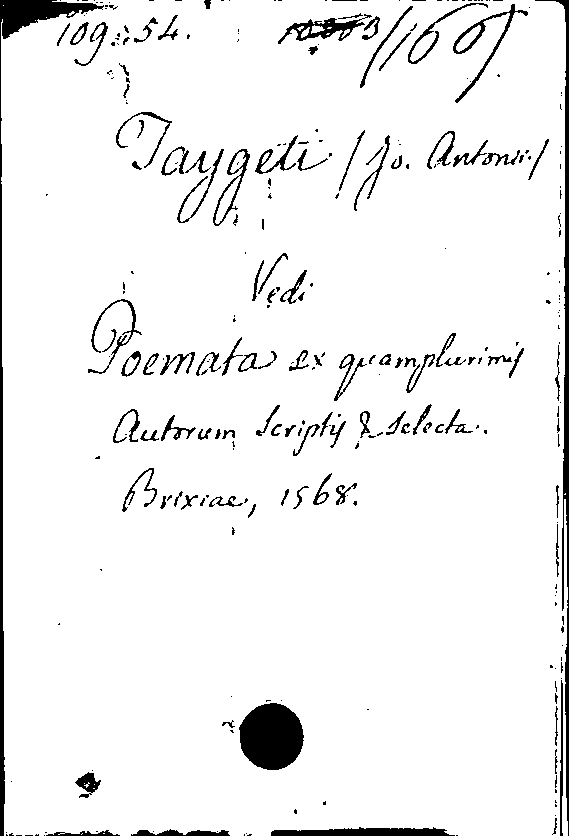 109. 54. (166)
Taygeti / Jo. Antonii. /
Vedi
Poemata ex quamplurimis
Autorum Scriptis & selecta.
Brixiae, 1568.